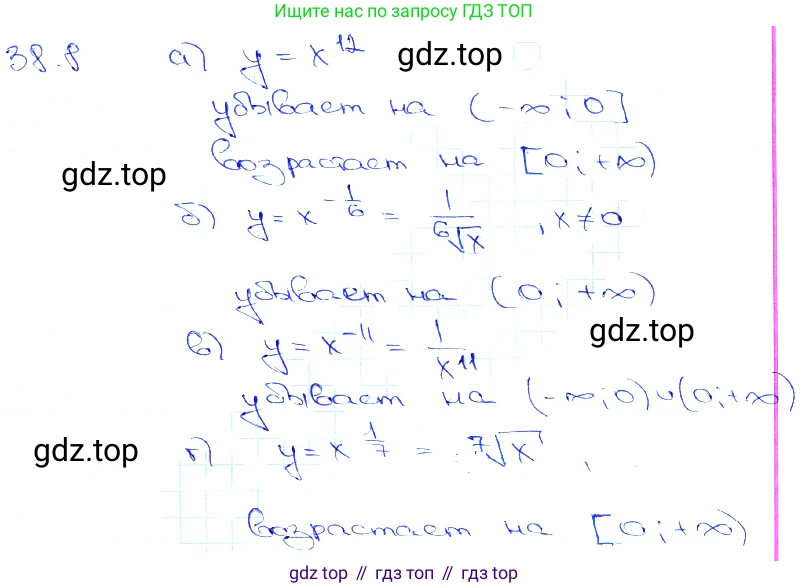 Ищите нас по запросу ГДЗ ТОП
38.8 а) y = x^12 gdz.top
убывает на (-∞; 0]
возрастает на [0; +∞)
gdz.top
б) y = x^(-1/6) = 1/⁶√x , x ≠ 0
убывает на (0; +∞)
gdz.top
в) y = x^(-11) = 1/x^11
убывает на (-∞; 0) ∪ (0; +∞)
gdz.top г) y = x^(1/7) = ⁷√x ,
возрастает на [0; +∞)
gdz.top // гдз топ // гдз top